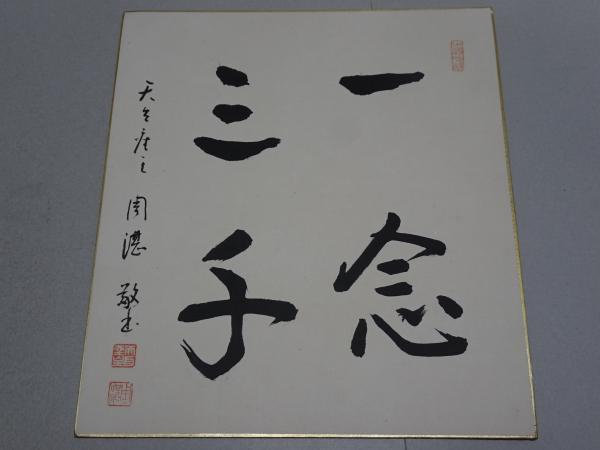 一念
三千
天台座主 周湛 敬書